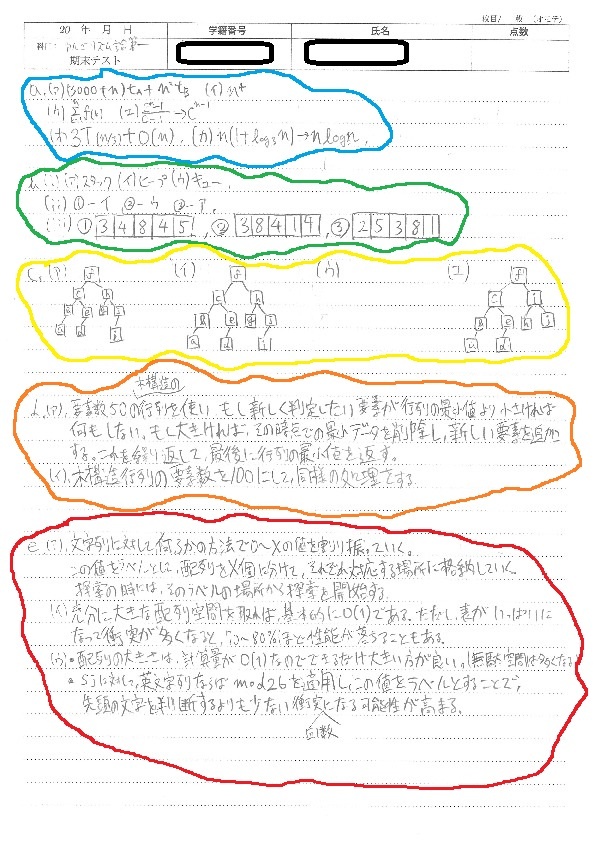 枚目/ 枚 (オモテ)
20 年 月 日 学籍番号 氏名 点数
科目: アルゴリズム論第一
期末テスト
a, (ア) (3000+n)tA + n²tB (イ) n⁴
(オ) 3T(n/3)+O(n), (カ) n(1+log₃n)→nlogn,
b, (i) (ア)スタック (イ)ヒープ (ウ)キュー,
(ii) ①-イ ②-ウ ③-ア,
(iii) ① 3 4 8 4 5, ② 3 8 4 1 4, ③ 2 5 3 8 1
c, (ア) (イ) (ウ) (エ)
木構造の
d, (ア), 要素数50の行列を使い もし新しく判定したい要素が行列の最小値より小さければ
何もしない。もし大きければ、その時点での最小データを削除し、新しい要素を追加
する。これを繰り返して、最後に行列の最小値を返す。
(イ), 木構造行列の要素数を100にして、同様の処理をする。
e, 文字列に対して何らかの方法で0~Xの値を割り振っていく。
この値をラベルごとに、配列をX個に分けて、それぞれ対応する場所に格納していく。
探索の時には、そのラベルの場所から探索を開始する。
充分に大きな配列空間を取れば、基本的にO(1)である。ただし、表がいっぱいに
なって衝突が多くなると、80%ほど性能が落ちることもある。
・配列の大きさは、計算量がO(1)なのでできるだけ大きい方が良い。(無駄な空間は多くなる
・Sjに対して、英文字列ならば mod26を適用し、この値をラベルとすることで、
先頭の文字を判断するよりも少ない衝突になる可能性が高まる。
回数